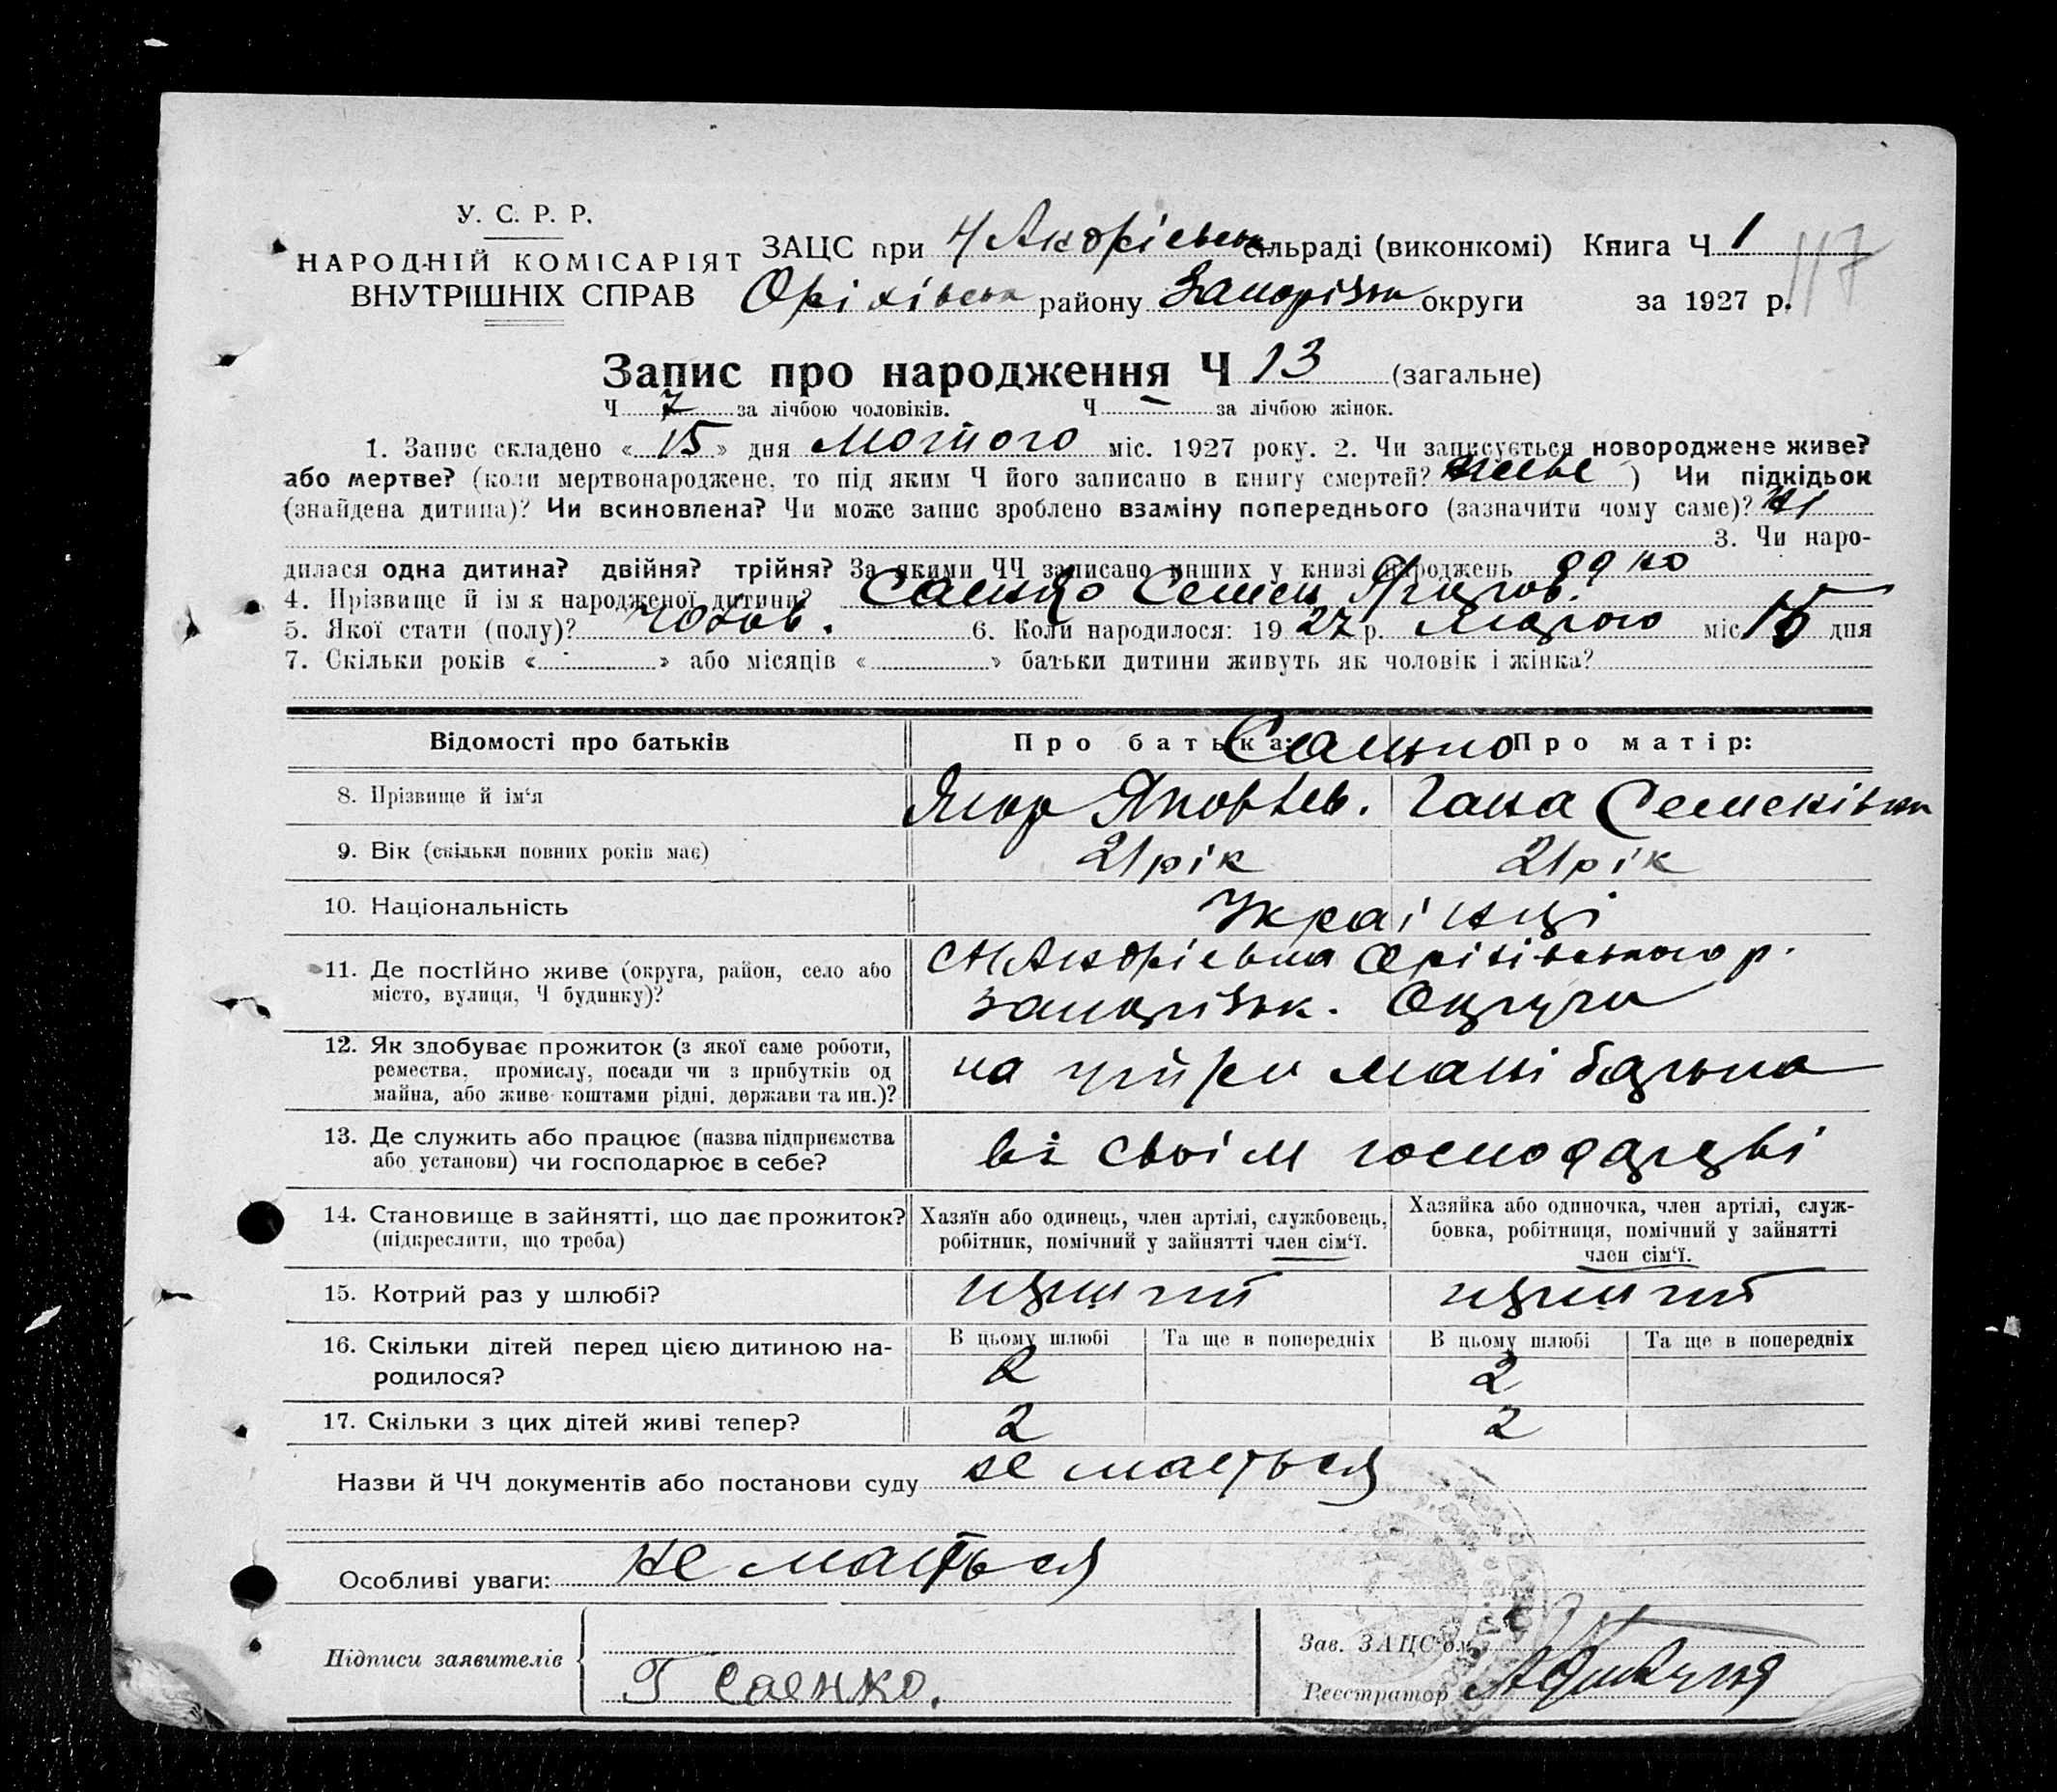 У. С. Р. Р.
НАРОДНІЙ КОМІСАРІЯТ
ВНУТРІШНІХ СПРАВ
ЗАЦС при Н Андрієвськ сільраді (виконкомі) Книга Ч 1
117
Оріхівськ району Запорізьк округи за 1927 р.
Запис про народження Ч 13 (загальне)
Ч 7 за лічбою чоловіків. Ч — за лічбою жінок.
1. Запис складено « 15 » дня Лютого міс. 1927 року. 2. Чи записується новороджене живе?
або мертве? (коли мертвонароджене, то під яким Ч його записано в книгу смертей? живе ) Чи підкідьок
(знайдена дитина)? Чи всиновлена? Чи може запис зроблено взаміну попереднього (зазначити чому саме)? ні
3. Чи наро-
дилася одна дитина? двійня? трійня? За якими ЧЧ записано инших у книзі народжень одно
4. Прізвище й ім'я народженої дитини? Саенко Семен
5. Якої стати (полу)? чолов. 6. Коли народилося: 1927 р. Лютого міс 15 дня
7. Скільки років « » або місяців « » батьки дитини живуть як чоловік і жінка?
Відомості про батьків Про батька: Саенко Про матір:
8. Прізвище й ім'я Яковлев. Гана Семенівна
9. Вік (скільки повних років має) 21 рік 21 рік
10. Національність Українці
11. Де постійно живе (округа, район, село або
місто, вулиця, Ч будинку)?
Н Андрієвка Оріхівського р.
Запорізьк. Округи
12. Як здобуває прожиток (з якої саме роботи,
ремества, промислу, посади чи з прибутків од
майна, або живе коштами рідні, держави та ин.)?
на
13. Де служить або працює (назва підприємства
або установи) чи господарює в себе?
в своїм господарстві
14. Становище в зайнятті, що дає прожиток?
(підкреслити, що треба)
Хазяїн або одинець, член артілі, службовець,
робітник, помічний у зайнятті член сім'ї.
Хазяйка або одиночка, член артілі, служ-
бовка, робітниця, помічний у зайнятті
член сім'ї.
15. Котрий раз у шлюбі? перший перший
16. Скільки дітей перед цією дитиною на-
родилося?
В цьому шлюбі Та ще в попередніх В цьому шлюбі Та ще в попередніх
2 2
17. Скільки з цих дітей живі тепер? 2 2
Назви й ЧЧ документів або постанови суду не мається
Особливі уваги: не мається
Підписи заявителів
Г Саенко.
Зав. ЗАЦС'ом
Реєстратор